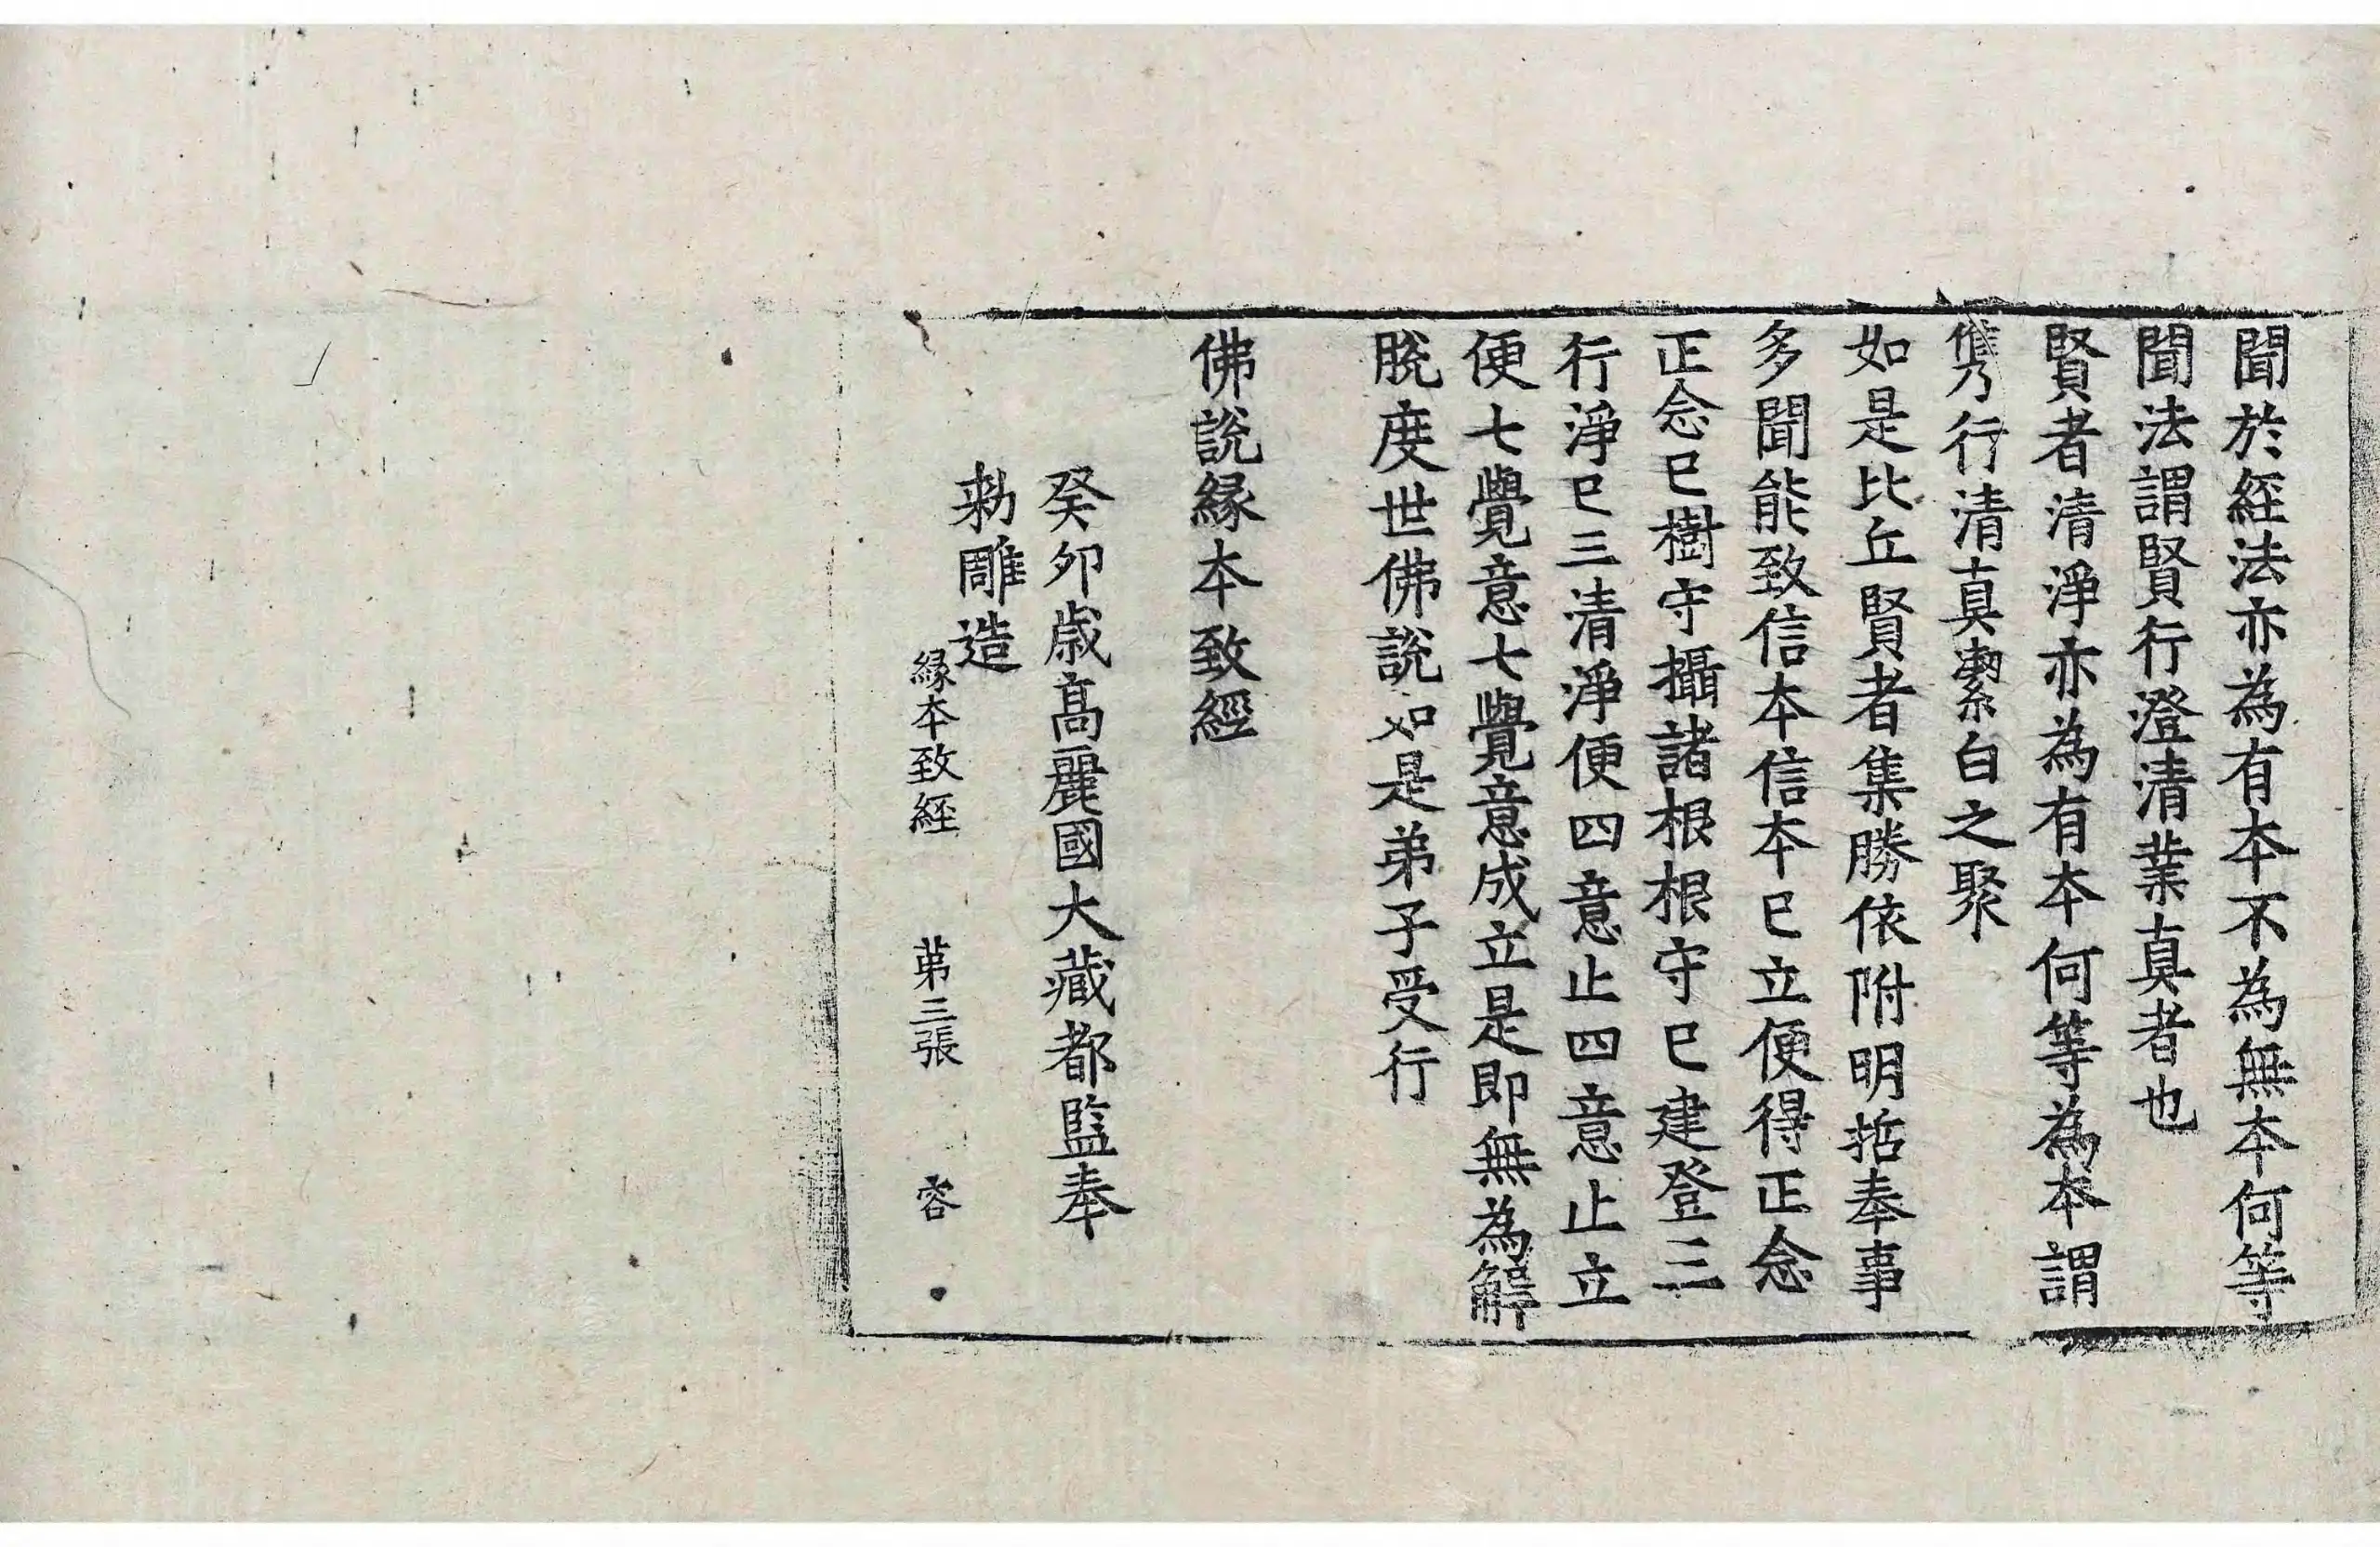 聞於經法亦為有本不為無本何等
聞法謂賢行澄清業真者也
賢者清淨亦為有本何等為本謂
儁乃行清真潔白之聚
如是比丘賢者集勝依附明哲奉事
多聞能致信本信本已立便得正念
正念已樹守攝諸根根守已建登三
行淨已三清淨便四意止四意止立
便七覺意七覺意成立是即無為解
脫度世佛說如是弟子受行
佛說緣本致經
癸卯歲高麗國大藏都監奉
勑雕造
緣本致經 第三張 容